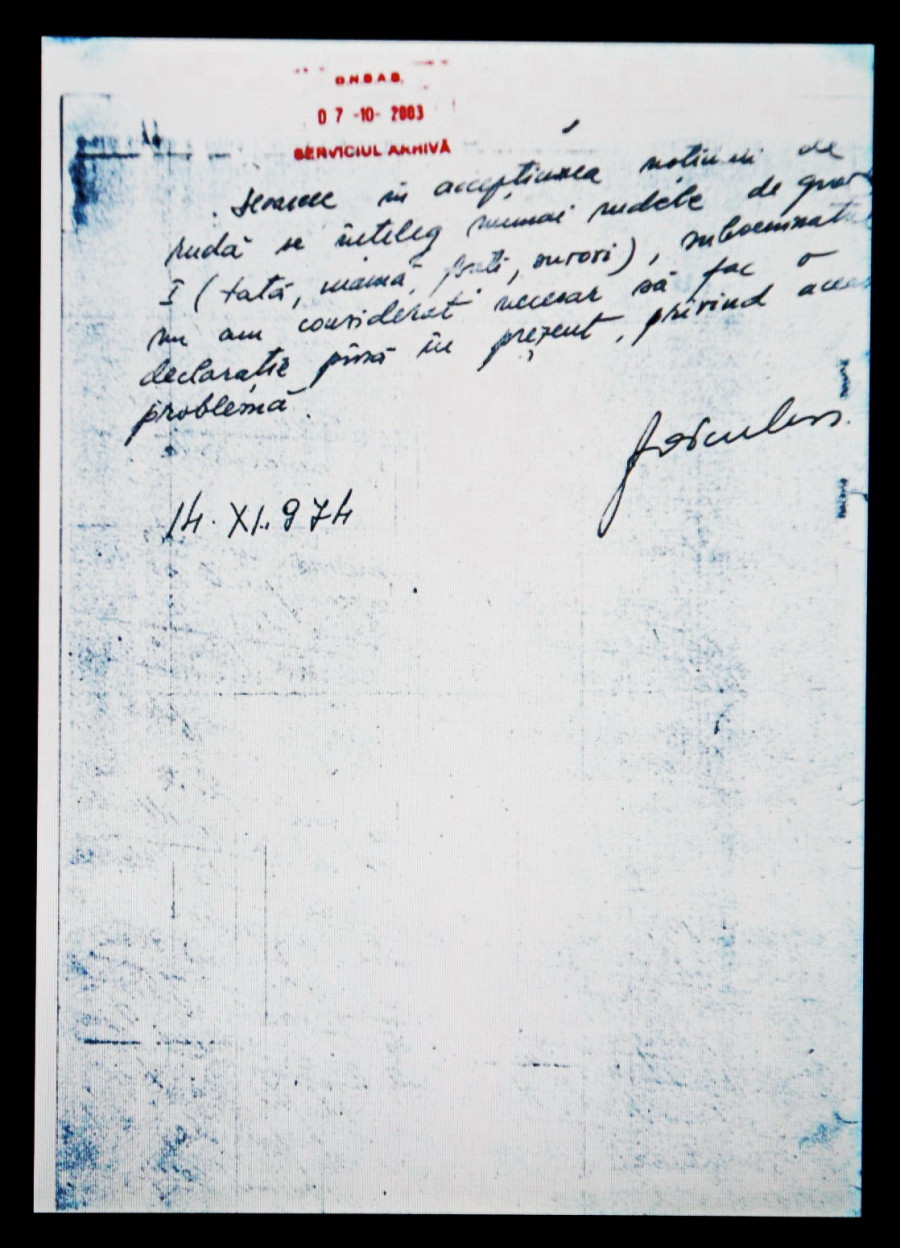 C.N.S.A.S.
07-10-2003
SERVICIUL ARHIVĂ
în accepțiunea noțiunii de
rudă se înțeleg numai rudele de grad
I (tată, mamă, frați, surori), subsemnata
nu am considerat necesar să fac o
declarație pînă în prezent, privind
problemă.
14.XI.974